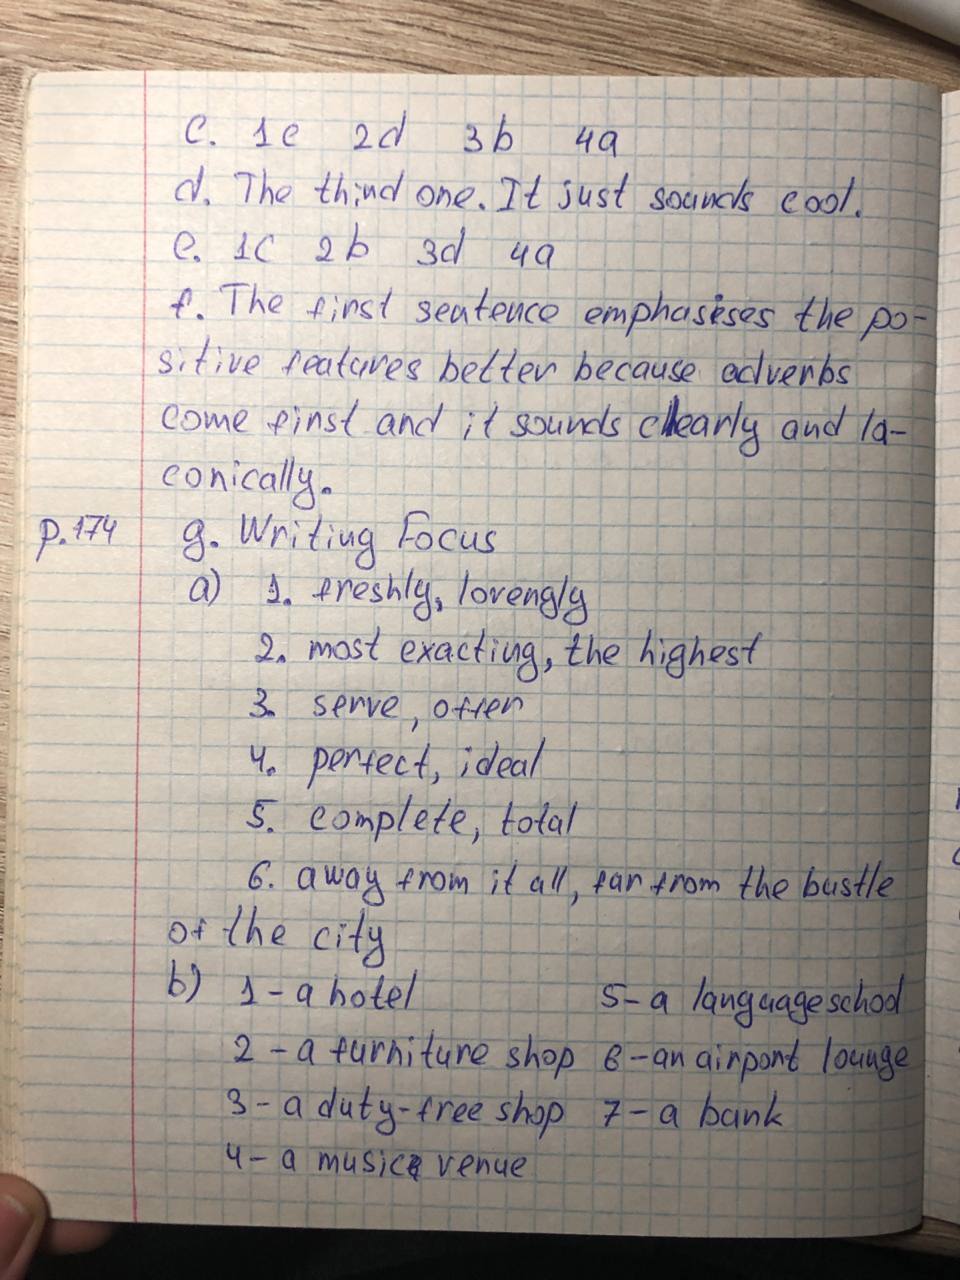 c. 1c 2d 3b 4a
d. The third one. It just sounds cool.
e. 1c 2b 3d 4a
f. The first sentence emphasises the po-
sitive features better because adverbs
come first and it sounds clearly and la-
conically.
p.174 g. Writing Focus
a) 1. freshly, lovengly
2. most exacting, the highest
3. serve, offer
4. perfect, ideal
5. complete, total
6. away from it all, far from the bustle
of the city
b) 1 - a hotel 5 - a language school
2 - a furniture shop 6 - an airport lounge
3 - a duty-free shop 7 - a bank
4 - a music venue